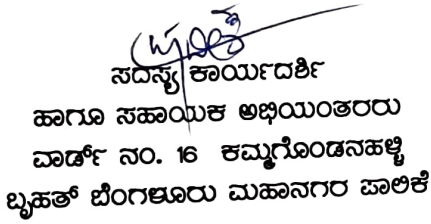 ಸದಸ್ಯ ಕಾರ್ಯದರ್ಶಿ
ಹಾಗೂ ಸಹಾಯಕ ಅಭಿಯಂತರರು
ವಾರ್ಡ್ ನಂ. 16 ಕಮ್ಮಗೊಂಡನಹಳ್ಳಿ
ಬೃಹತ್ ಬೆಂಗಳೂರು ಮಹಾನಗರ ಪಾಲಿಕೆ